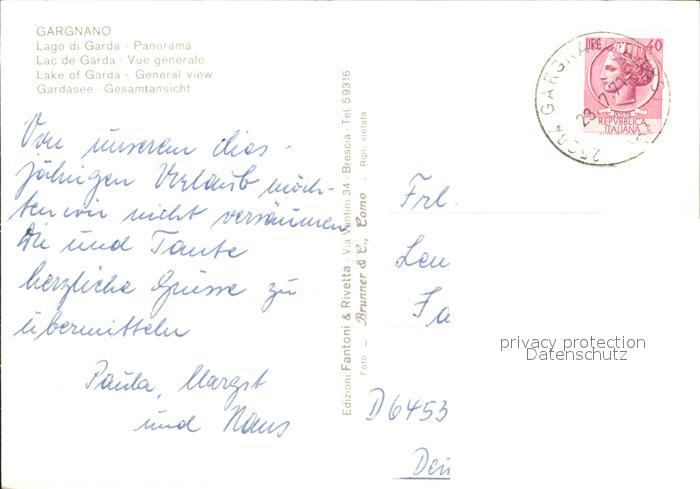 GARGNANO
Lago di Garda - Panorama
Lac de Garda - Vue générale
Lake of Garda - General view
Gardasee - Gesamtansicht
Von unserem dies-
jährigen Urlaub möch-
ten wir nicht versäumen
Die und Tante
herzliche Grüsse zu
übermitteln
Paula, Margit
und Hans
Edizioni Fantoni & Rivetta - Via Fantini 34 - Brescia - Tel. 59316
Foto - Brunner & C., Como - Ripr. vietata
LIRE 40
POSTE
REPVBBLICA
ITALIANA
GARGNA
23.7.71
Frl.
Leu
Fa
D6453
Deu
privacy protection
Datenschutz